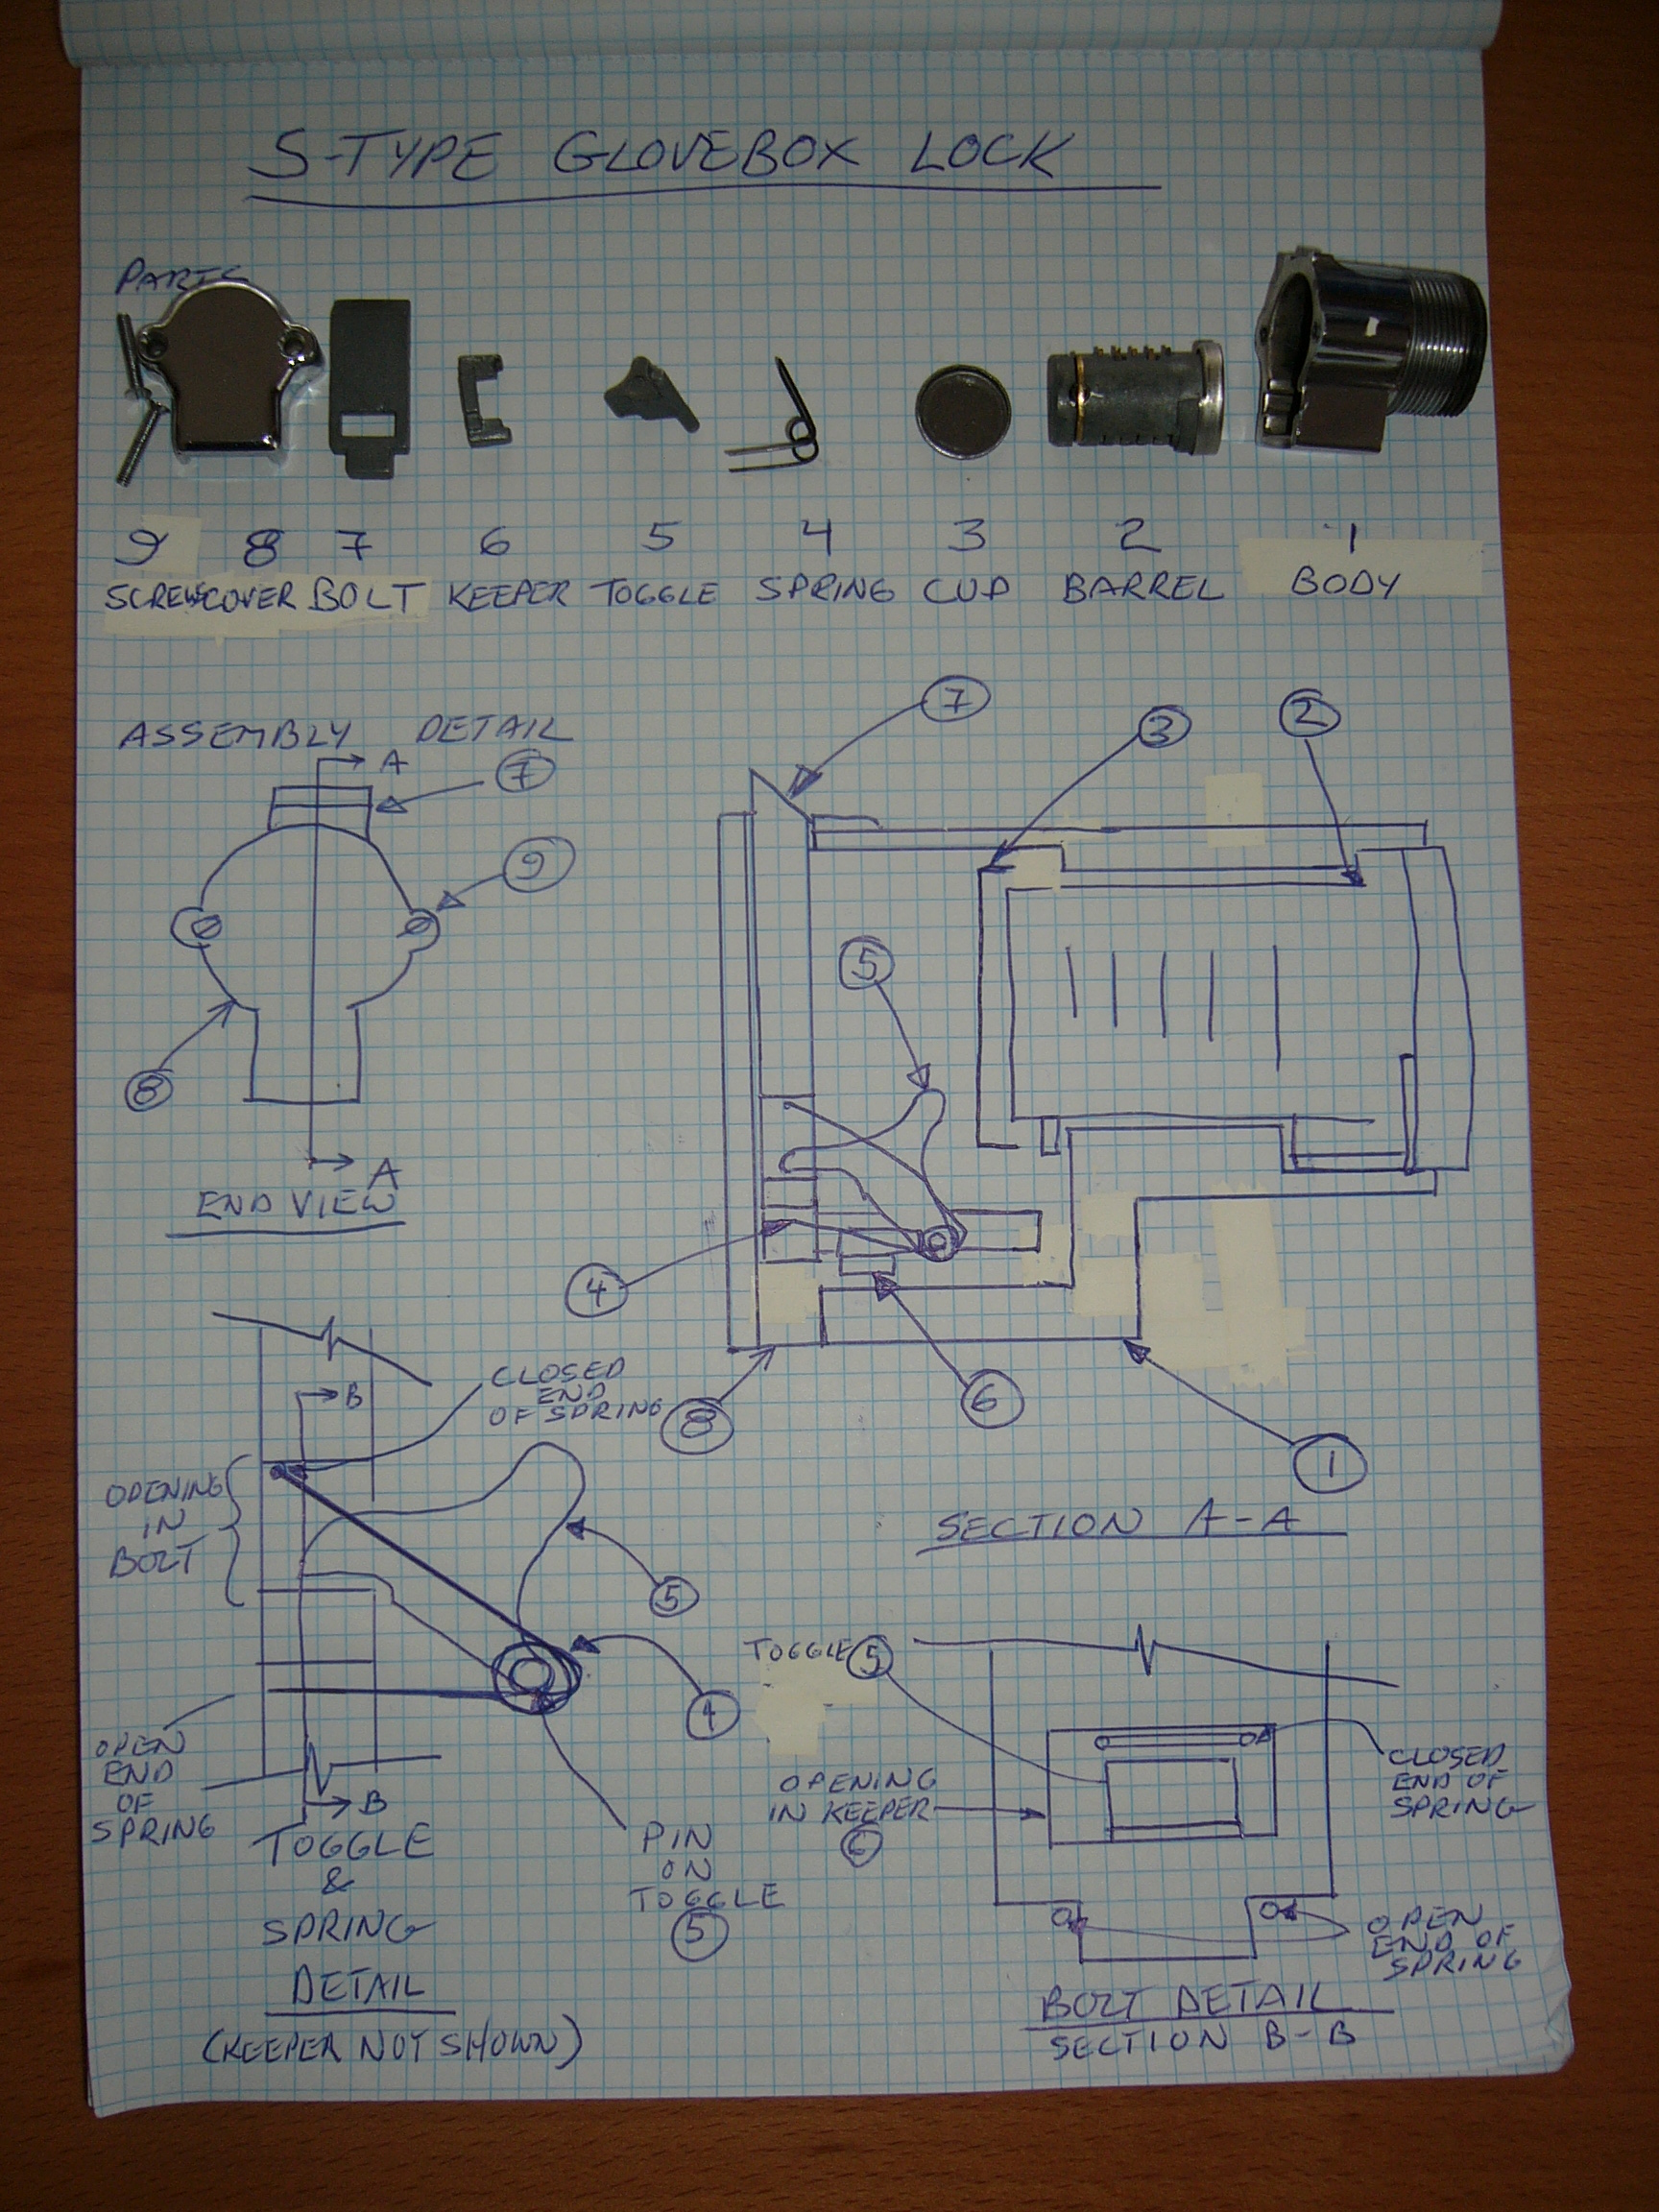 S-TYPE GLOVEBOX LOCK
PARTS
9 8 7 6 5 4 3 2 1
SCREWS COVER BOLT KEEPER TOGGLE SPRING CUP BARREL BODY
ASSEMBLY DETAIL
A
7
9
8
A
END VIEW
7
3
2
5
4
6
8
1
SECTION A-A
CLOSED
END
OF SPRING
B
OPENING
IN
BOLT
5
4
OPEN
END
OF
SPRING
B
PIN
ON
TOGGLE
5
TOGGLE
&
SPRING
DETAIL
(KEEPER NOT SHOWN)
TOGGLE 5
OPENING
IN KEEPER
6
CLOSED
END OF
SPRING
OPEN
END OF
SPRING
BOLT DETAIL
SECTION B-B